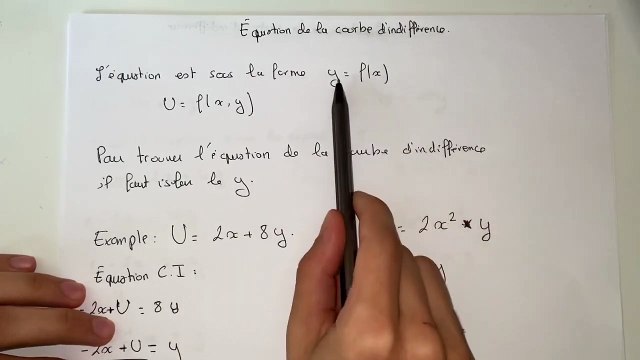 Équation de la courbe d'indifférence.
L'équation est sous la forme y = f(x)
U = f(x, y)
Pour trouver l'équation de la courbe d'indifférence
il faut isoler le y.
Example: U = 2x + 8y. = 2x² * y
Équation C.I :
-2x+U = 8y
-2x + U = y